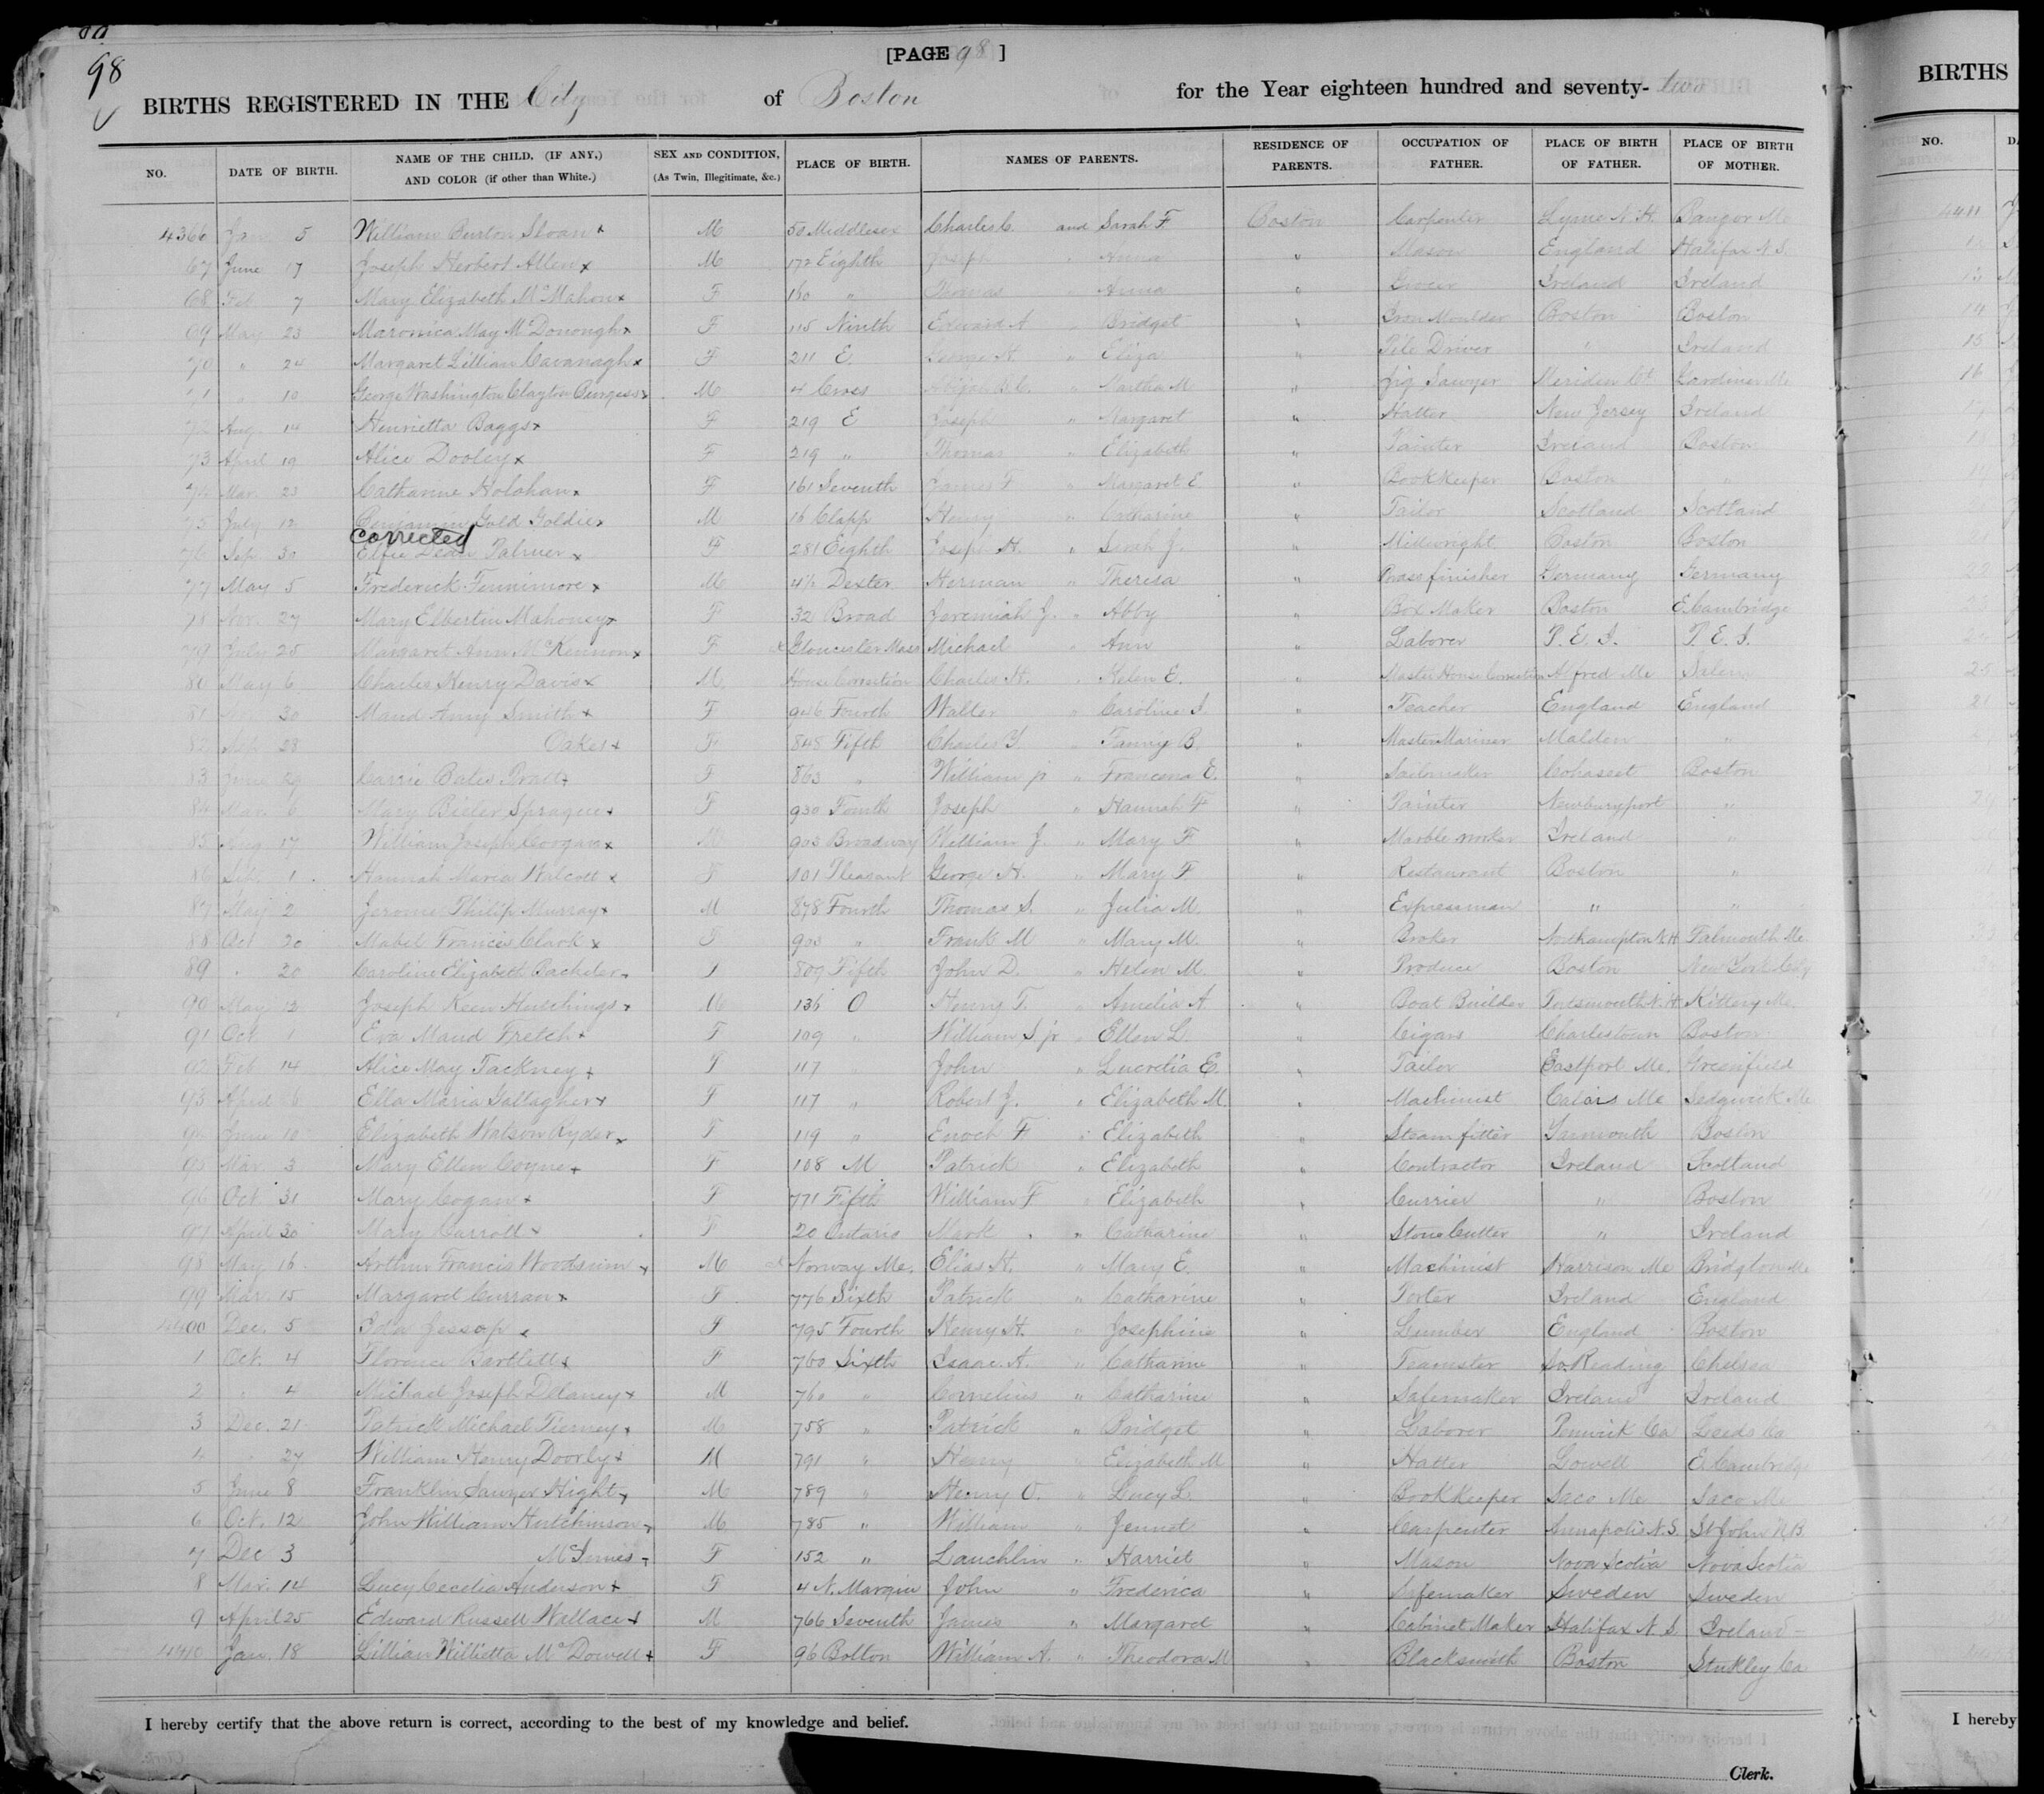 98
[PAGE 98 ]
BIRTHS REGISTERED IN THE City of Boston for the Year eighteen hundred and seventy- two
NO. DATE OF BIRTH. NAME OF THE CHILD, (IF ANY,) AND COLOR (if other than White.) SEX AND CONDITION, (As Twin, Illegitimate, &c.) PLACE OF BIRTH. NAMES OF PARENTS. RESIDENCE OF PARENTS. OCCUPATION OF FATHER. PLACE OF BIRTH OF FATHER. PLACE OF BIRTH OF MOTHER.
4366 Jan 5 William Burton Sloan x M 50 Middlesex Charles C. and Sarah F Boston Carpenter Lyme N.H. Bangor Me
67 June 17 Joseph Herbert Allen x M 172 Eighth Joseph " Anna " Mason England Halifax N.S.
68 Feb 7 Mary Elizabeth McMahon x F 180 " Thomas " Anna " Grocer Ireland Ireland
69 May 23 Maronica May McDonongh x F 115 Ninth Edward A " Bridget " Iron Moulder Boston Boston
70 " 24 Margaret Lillian Cavanagh x F 211 E George H " Eliza " Pile Driver " Ireland
71 " 10 George Washington Clayton Burgess x M 4 " Martha M " Jig Sawyer Meriden Ct. Gardiner Me
72 Aug 14 Henrietta Baggs x F 219 E Joseph " Margaret " Hatter New Jersey Ireland
73 April 19 Alice Dooley x F 219 " Thomas " Elizabeth " Painter Ireland Boston
74 Mar. 23 Catharine Holohan x F 161 Seventh James F " Margaret E. " Bookkeeper Boston "
75 July 12 Benjamin Gold Goldie x M 16 Clapp Henry " Catharine " Tailor Scotland Scotland
Corrected
76 Sep 30 Effie Dean Palmer x F 281 Eighth Joseph H. " Sarah J. " Millwright Boston Boston
77 May 5 Frederick Fennimore x M 4½ Dexter Herman " Theresa " Brass finisher Germany Germany
78 Nov. 27 Mary Elbertin Mahoney x F 32 Broad Jeremiah J. " Abby " Box Maker Boston E. Cambridge
79 July 25 Margaret Ann McKennon x F Gloucester Mass Michael " Ann " Laborer P.E.I. P.E.I.
80 May 6 Charles Henry Davis x M House Correction Charles H. " Helen E. " Master House Correction Alfred Me Salem
81 Nov 30 Maud Amy Smith x F 946 Fourth Walter " Caroline S. " Teacher England England
82 Sep 28 Oakes x F 848 Fifth Charles Y " Fanny B. " Master Mariner Malden "
83 June 29 Carrie Bates Pratt x F 863 " William jr " Francena E. " Sailmaker Cohasset Boston
84 Mar. 6 Mary Bixler Sprague x F 930 Fourth Joseph " Hannah F " Painter Newburyport "
85 Aug 17 William Joseph Coogan x M 903 Broadway William J. " Mary F " Marble worker Ireland "
86 Sep. 1 Hannah Maria Walcott x F 101 Pleasant George H. " Mary F " Restaurant Boston "
87 May 2 Jerome Philip Murray x M 878 Fourth Thomas S. " Julia M. " Expressman " "
88 Oct 20 Mabel Francis Clark x F 903 " Frank M " Mary M. " Broker Northampton N.H Falmouth Me.
89 " 20 Caroline Elizabeth Bacheler x F 809 Fifth John D. " Helen M. " Produce Boston New York City
90 May 12 Joseph Keen Hutchings x M 136 O Henry T. " Amelia A. " Boat Builder Portsmouth N.H Kittery Me.
91 Oct. 1 Eva Maud Fretch x F 109 " William S jr " Ellen L. " Cigars Charlestown Boston
92 Feb 14 Alice May Tackney x F 117 " John " Lucretia E. " Tailor Eastport Me. Greenfield
93 April 6 Ella Maria Gallagher x F 117 " Robert J. " Elizabeth M. " Machinist Calais Me Sedgwick Me
94 June 10 Elizabeth Watson Ryder x F 119 " Enoch F " Elizabeth " Steam fitter Yarmouth Boston
95 Mar. 3 Mary Ellen Coyne x F 108 M Patrick " Elizabeth " Contractor Ireland Scotland
96 Oct. 31 Mary Cogan x F 771 Fifth William F " Elizabeth " Currier " Boston
97 April 30 Mary Carroll x F 20 Ontario Mark " Catharine " Stone Cutter " Ireland
98 May 16 Arthur Francis Woodsum x M Norway Me. Elias H. " Mary E. " Machinist Harrison Me Bridgton Me
99 Mar. 15 Margaret Curran x F 776 Sixth Patrick " Catharine " Porter Ireland England
4400 Dec. 5 Iola Jessop x F 795 Fourth Henry H. " Josephine " Lumber England Boston
1 Oct. 4 Florence Bartlett x F 760 Sixth Isaac A. " Catharine " Teamster So. Reading Chelsea
2 " 4 Michael Joseph Delaney x M 760 " Cornelius " Catharine " Safemaker Ireland Ireland
3 Dec. 21 Patrick Michael Tierney x M 758 " Patrick " Bridget " Laborer Penwick Ca Leeds Ca
4 " 24 William Henry Doorly x M 791 " Henry " Elizabeth M " Hatter Lowell E. Cambridge
5 June 8 Franklin Sawyer Hight x M 789 " Henry O. " Lucy L. " Bookkeeper Saco Me Saco Me
6 Oct. 12 John William Hutchinson x M 785 " William " Jennet " Carpenter Annapolis N.S. St John N.B.
7 Dec 3 McInnes x F 152 " Lauchlin " Harriet " Mason Nova Scotia Nova Scotia
8 Mar. 14 Lucy Cecelia Anderson x F 4 N. Margin John " Frederica " Safemaker Sweden Sweden
9 April 25 Edward Russell Wallace x M 766 Seventh James " Margaret " Cabinet Maker Halifax N.S. Ireland
4410 Jan. 18 Lillian Willietta McDowell x F 96 Bolton William A. " Theodora M " Blacksmith Boston Stukley Ca
I hereby certify that the above return is correct, according to the best of my knowledge and belief.
Clerk.
BIRTHS
NO.
4411
12
13
14
15
16
I hereby